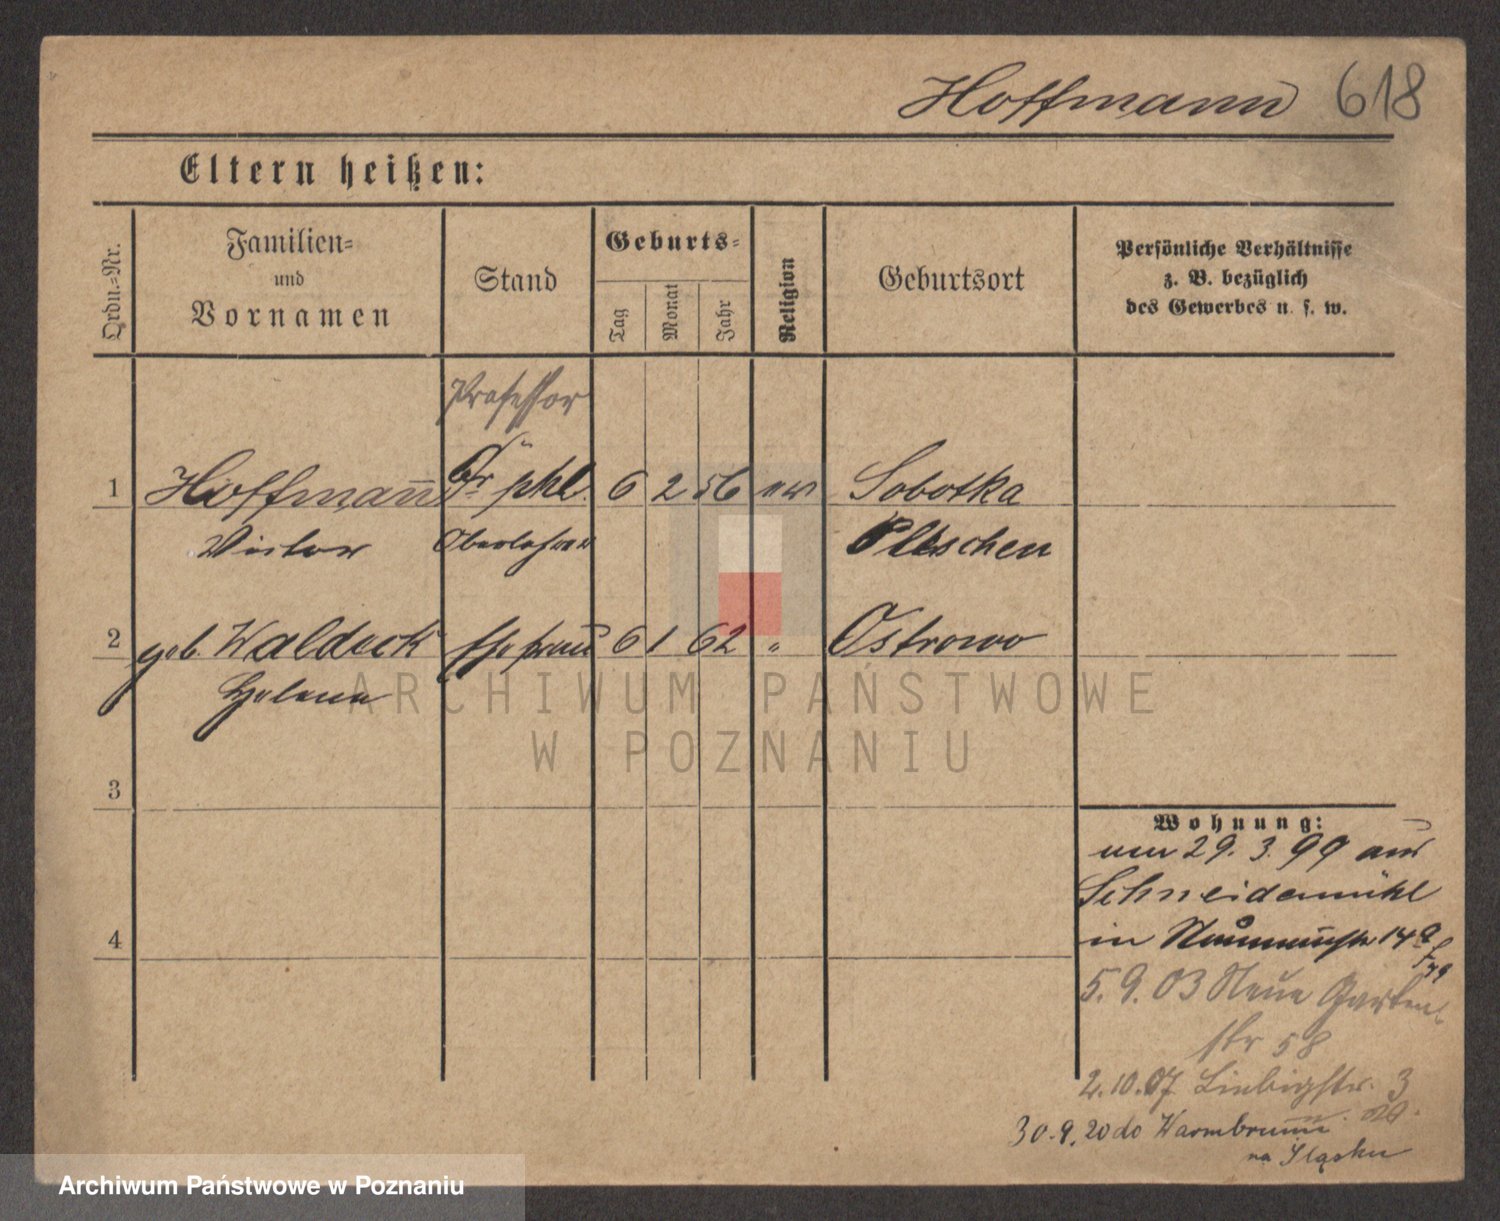 Hoffmann 618
Eltern heißen:
Ordn.-Nr.
Familien-
und
Vornamen
Stand
Geburts-
Tag
Monat
Jahr
Religion
Geburtsort
Persönliche Verhältnisse
z. B. bezüglich
des Gewerbes u. s. w.
Professor
1 Hoffmann Dr phil. 6 2 56 ev Sobotka
Victor Oberlehrer Pleschen
2 geb. Waldeck Ehefrau 6 1 62 " Ostrowo
Helena
ARCHIWUM PAŃSTWOWE
W POZNANIU
3
4
Wohnung:
29. 3. 99 aus
Schneidemühl
in Naumannstr 14
5. 9. 03 Neue Garten-
str 58
2. 10. 07 Liebigstr. 3
30. 9. 20 do Warmbrunn
na Śląsku
Archiwum Państwowe w Poznaniu